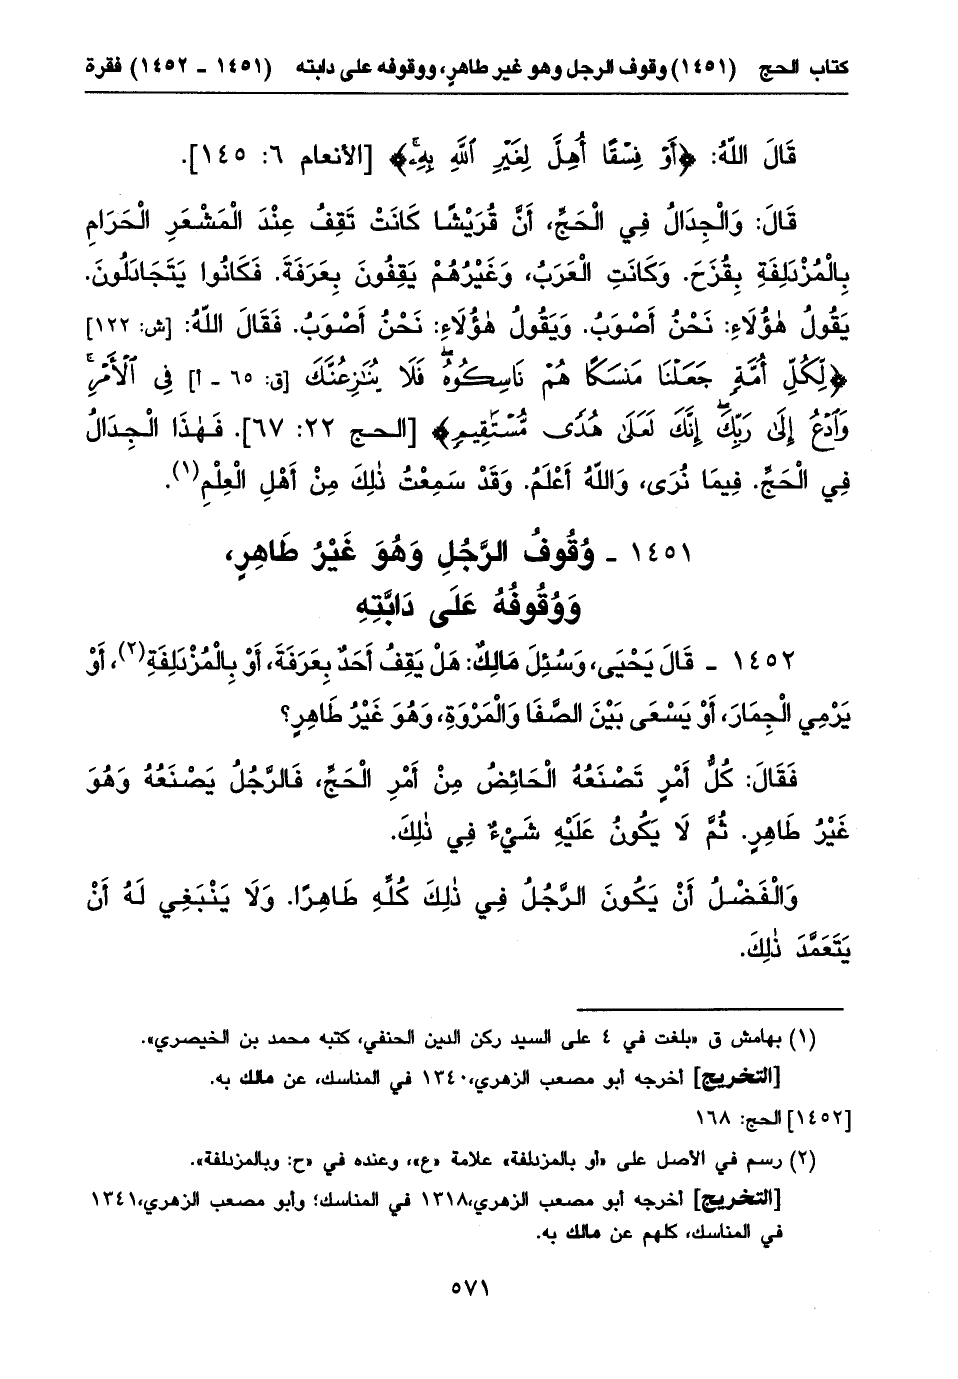 كتاب الحج (١٤٥١) وقوف الرجل وهو غير طاهرٍ، ووقوفه على دابته (١٤٥١ - ١٤٥٢) فقرة
قَالَ اللّهُ: ﴿أَوْ فِسْقًا أُهِلَّ لِغَيْرِ ٱللَّهِ بِهِۦۚ﴾ [الأنعام ٦: ١٤٥].
قَالَ: وَالْجِدَالُ فِي الْحَجِّ، أَنَّ قُرَيْشًا كَانَتْ تَقِفُ عِنْدَ الْمَشْعَرِ الْحَرَامِ
بِالْمُزْدَلِفَةِ بِقُزَحَ. وَكَانَتِ الْعَرَبُ، وَغَيْرُهُمْ يَقِفُونَ بِعَرَفَةَ. فَكَانُوا يَتَجَادَلُونَ.
يَقُولُ هٰؤُلَاءِ: نَحْنُ أَصْوَبُ. وَيَقُولُ هٰؤُلَاءِ: نَحْنُ أَصْوَبُ. فَقَالَ اللّهُ: [ش: ١٢٢]
﴿لِّكُلِّ أُمَّةٍ جَعَلْنَا مَنسَكًا هُمْ نَاسِكُوهُۖ فَلَا يُنَٰزِعُنَّكَ [ق: ٦٥ - أ] فِى ٱلْأَمْرِۚ
وَٱدْعُ إِلَىٰ رَبِّكَۖ إِنَّكَ لَعَلَىٰ هُدًى مُّسْتَقِيمٍ﴾ [الحج ٢٢: ٦٧]. فَهٰذَا الْجِدَالُ
فِي الْحَجِّ. فِيمَا نُرَى، وَاللّهُ أَعْلَمُ. وَقَدْ سَمِعْتُ ذٰلِكَ مِنْ أَهْلِ الْعِلْمِ(١).
١٤٥١ - وُقُوفُ الرَّجُلِ وَهُوَ غَيْرُ طَاهِرٍ،
وَوُقُوفُهُ عَلَى دَابَّتِهِ
١٤٥٢ - قَالَ يَحْيَى، وَسُئِلَ مَالِكٌ: هَلْ يَقِفُ أَحَدٌ بِعَرَفَةَ، أَوْ بِالْمُزْدَلِفَةِ(٢)، أَوْ
يَرْمِي الْجِمَارَ، أَوْ يَسْعَى بَيْنَ الصَّفَا وَالْمَرْوَةِ، وَهُوَ غَيْرُ طَاهِرٍ؟
فَقَالَ: كُلُّ أَمْرٍ تَصْنَعُهُ الْحَائِضُ مِنْ أَمْرِ الْحَجِّ، فَالرَّجُلُ يَصْنَعُهُ وَهُوَ
غَيْرُ طَاهِرٍ. ثُمَّ لَا يَكُونُ عَلَيْهِ شَيْءٌ فِي ذٰلِكَ.
وَالْفَضْلُ أَنْ يَكُونَ الرَّجُلُ فِي ذٰلِكَ كُلِّهِ طَاهِرًا. وَلَا يَنْبَغِي لَهُ أَنْ
يَتَعَمَّدَ ذٰلِكَ.
(١) بهامش ق «بلغت في ٤ على السيد ركن الدين الحنفي، كتبه محمد بن الخيصري».
[التخريج] أخرجه أبو مصعب الزهري،١٣٤٠ في المناسك، عن مالك به.
[١٤٥٢] الحج: ١٦٨
(٢) رسم في الأصل على «أو بالمزدلفة» علامة «ع»، وعنده في «ح: وبالمزدلفة».
[التخريج] أخرجه أبو مصعب الزهري،١٣١٨ في المناسك؛ وأبو مصعب الزهري،١٣٤١
في المناسك، كلهم عن مالك به.
٥٧١